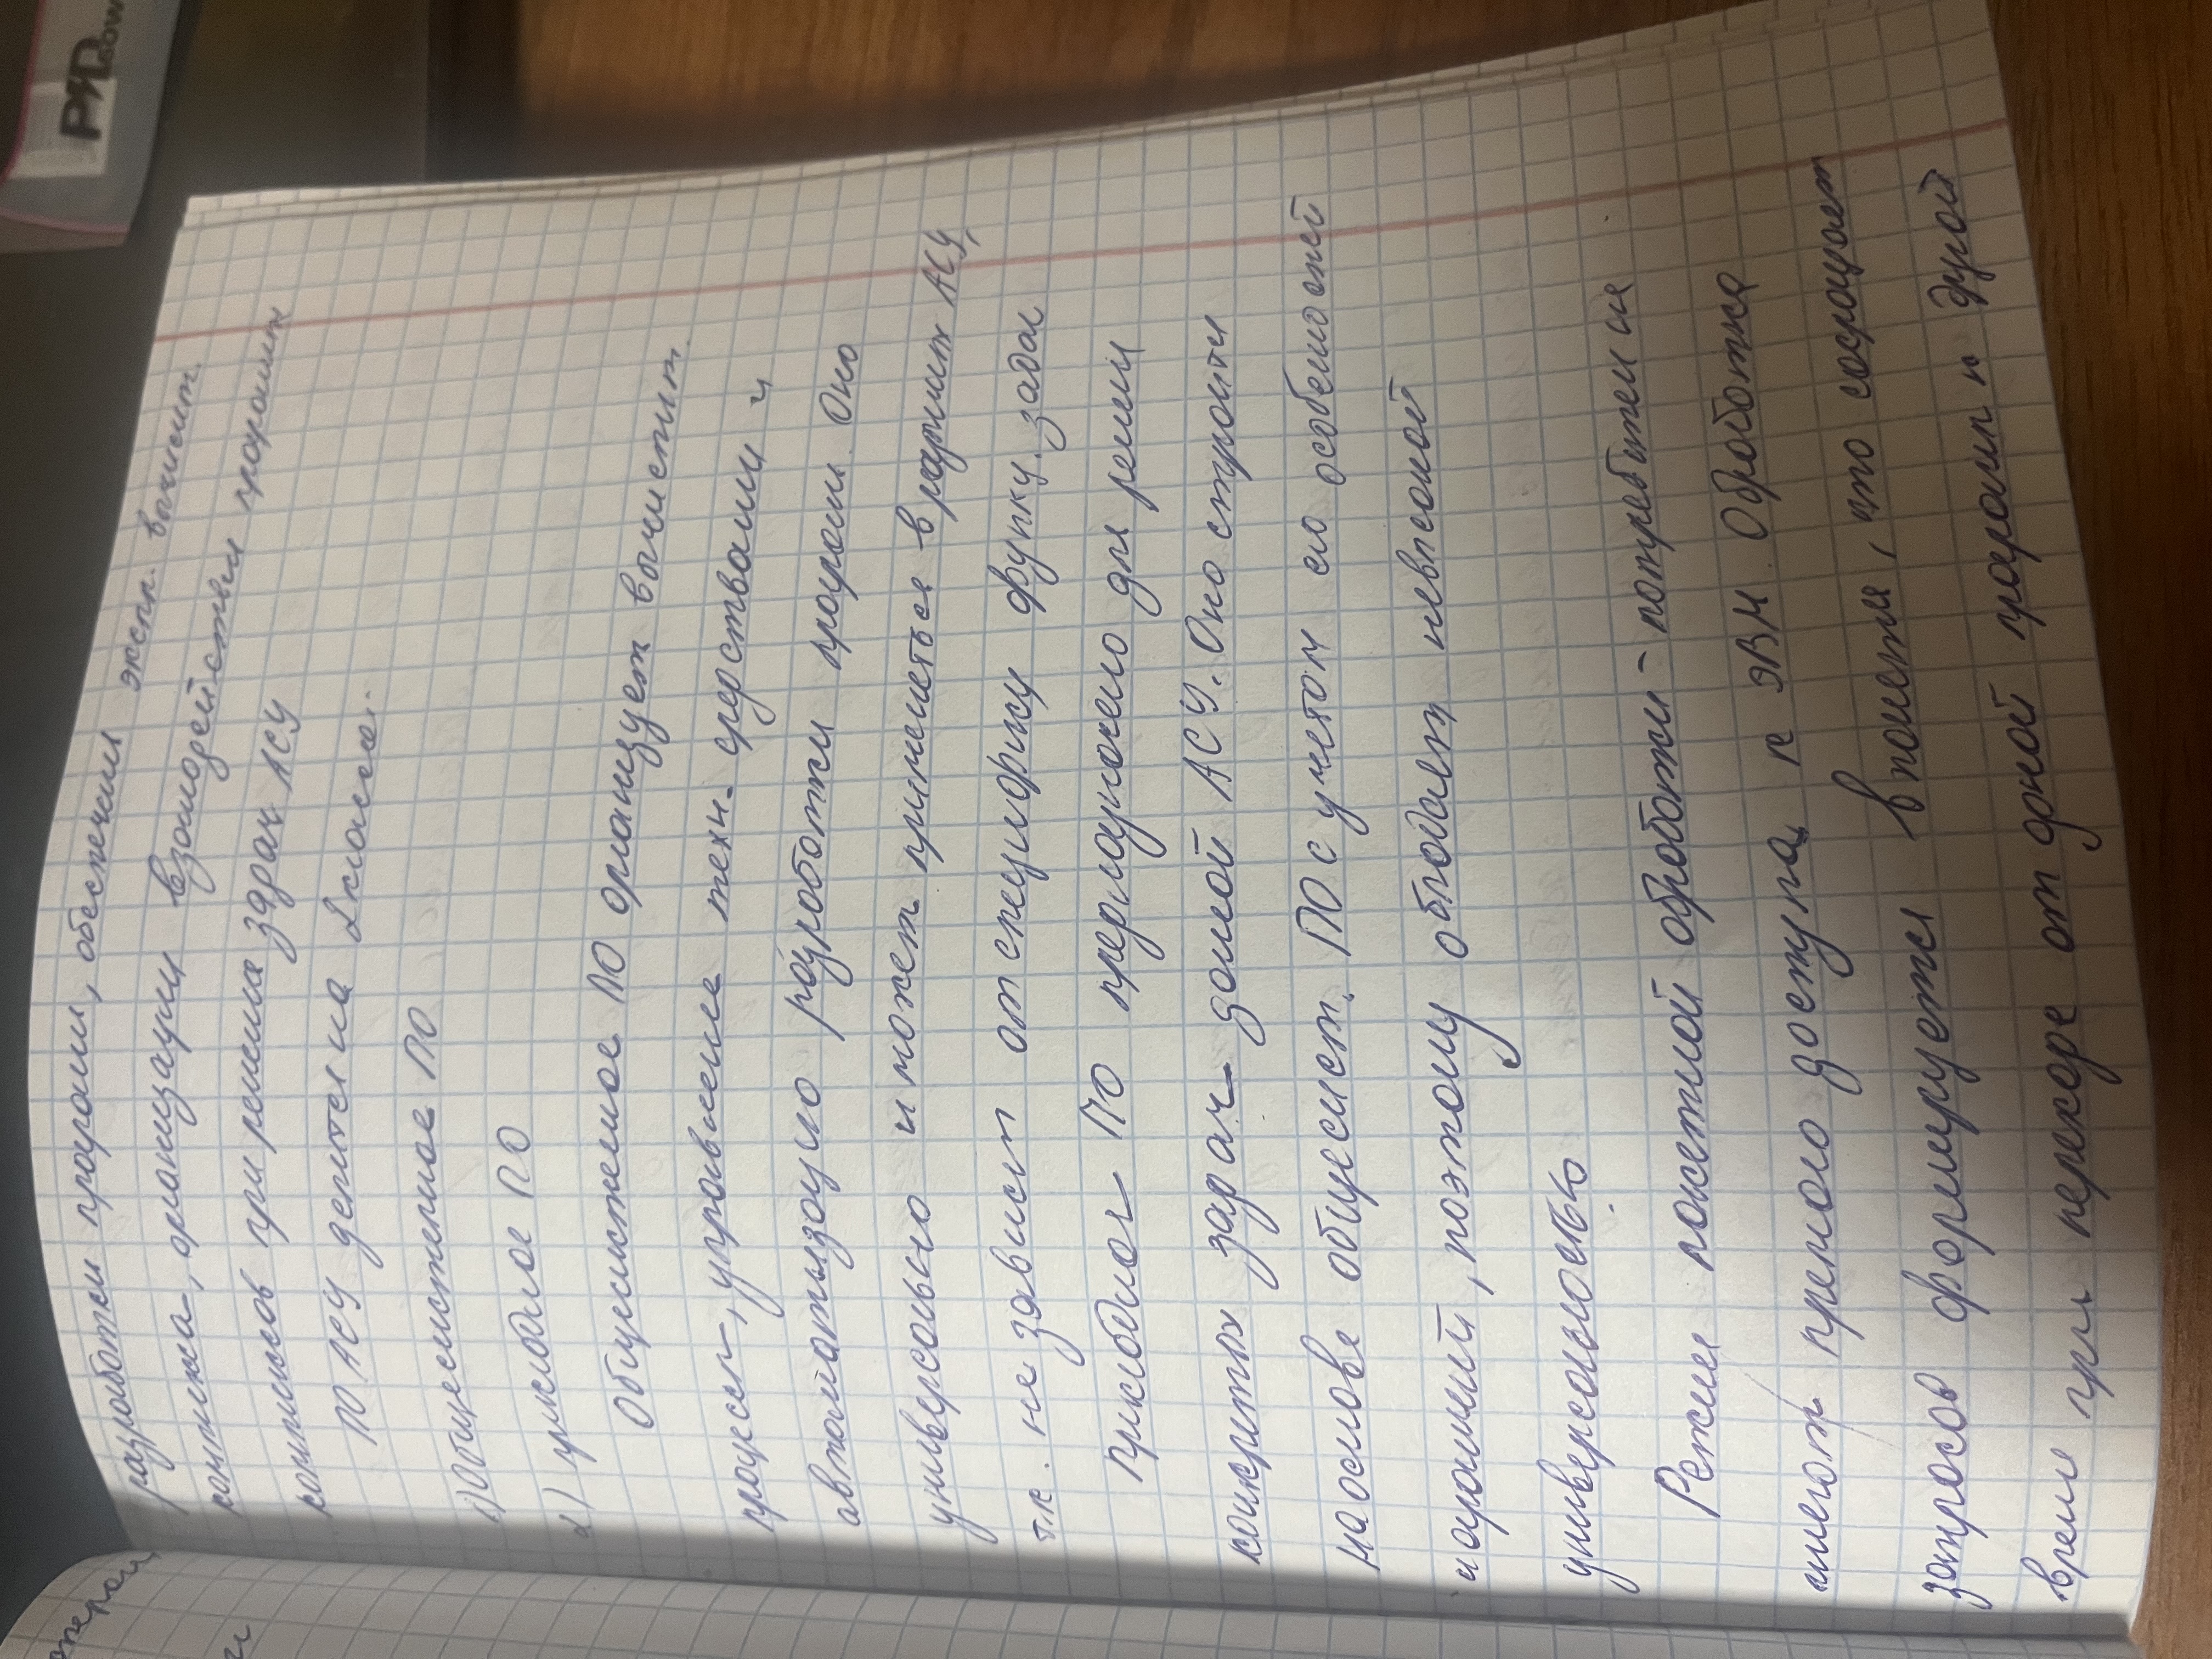 разработки програм, обеспечения экспл. вычислит.
комплекса, организации взаимодействия програмнн
комплексов при решение здрач АСУ
ПО АСУ делится на 2 класса.
1) Общесистемное ПО
2) приклодное ПО
Общесистемное ПО организует вычислит.
процесы, управнение техн. средствами и
автоматизацию разработки програм. Оно
универсально и может применяться в различн АСУ,
т.к. не зависит от специфику функц. задач
Прикбное ПО предназначено для решен
конкретных задач даной АСУ. Оно строится
на основе общесист. ПО с учетом его особеностей
и ограничений, поэтому обладает невысокой
универсальностью.
Режим пакетной обработки - потребители не
имеют прямого доступа к ЭВМ. Обработка
запросов формируется в пакеты, что сокращает
время при переходе от одной програмы к другой
PAD